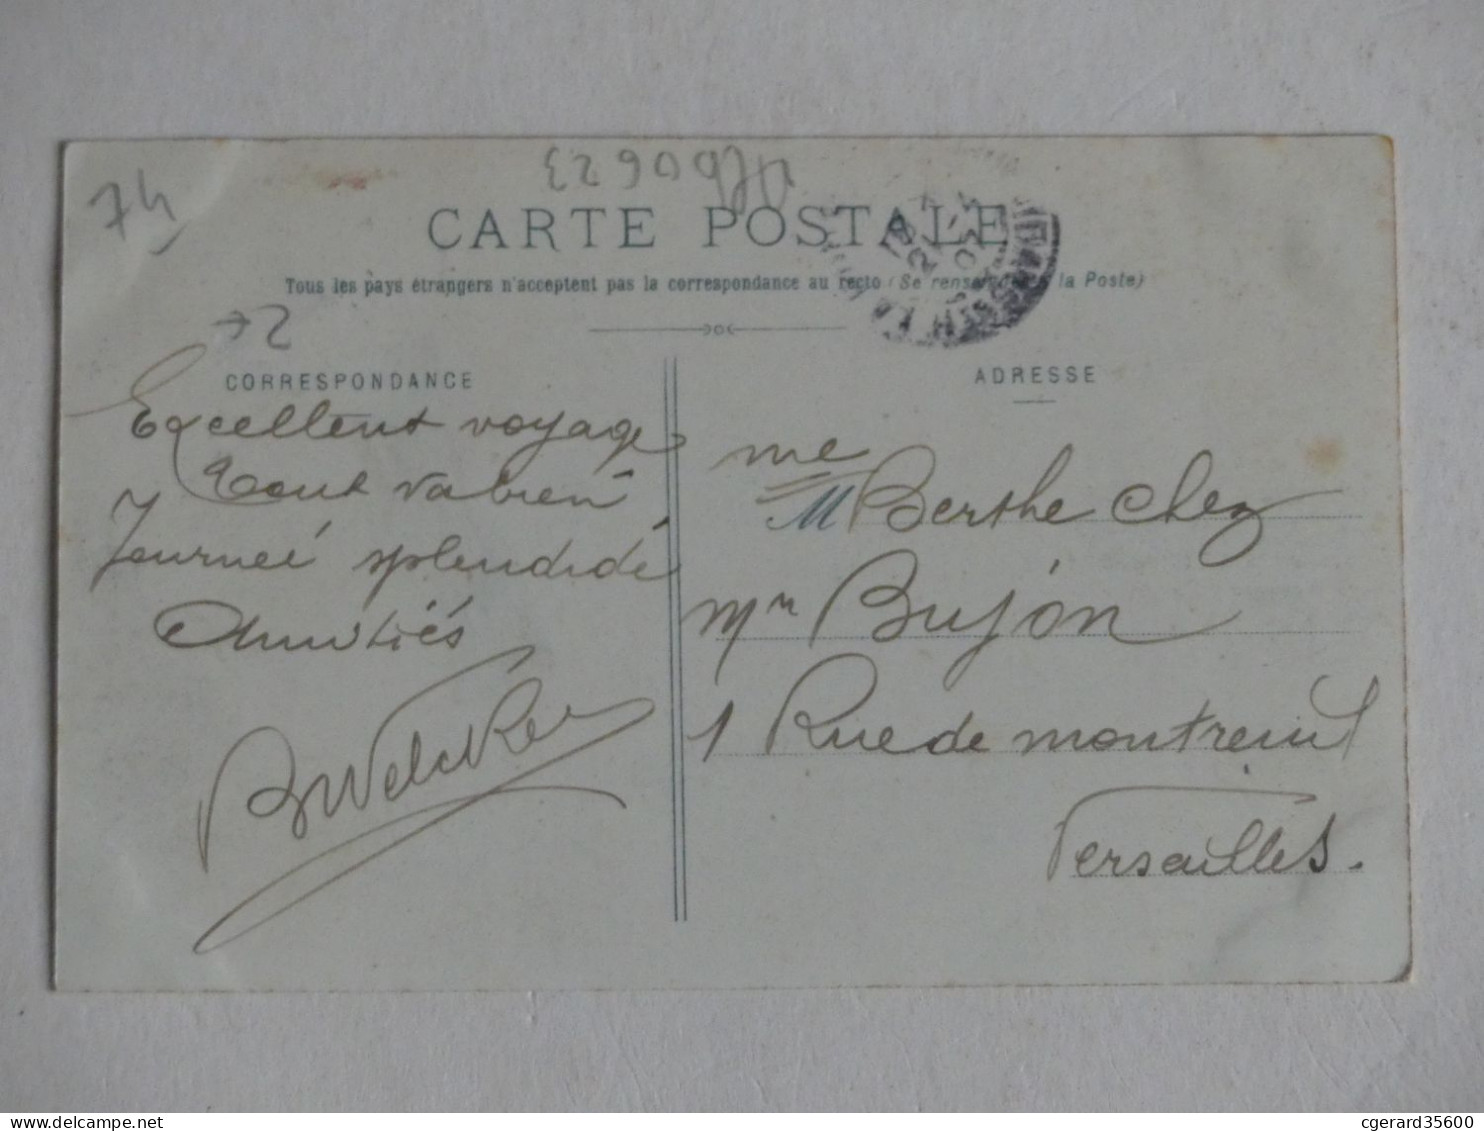 74
CARTE POSTALE
Tous les pays étrangers n'acceptent pas la correspondance au recto (Se renseigner à la Poste)
CORRESPONDANCE
Excellent voyage
Tout va bien
Journeé splendidé
Amitiés
BWelcker
ADRESSE
Me
M Berthe chez
Mr Bujon
1 Rue de Montreuil
Versailles.
cgerard35600